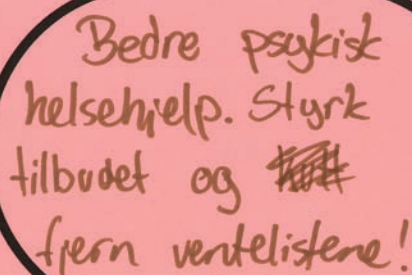 Bedre psykisk
helsehjelp. Styrk
tilbudet og
fjern ventelistene!